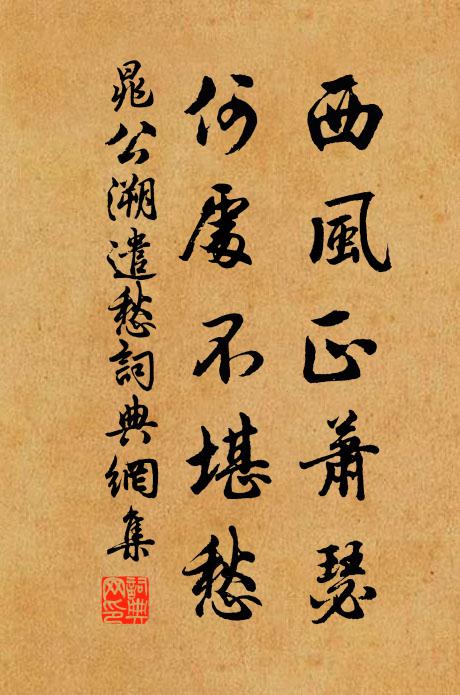 西風正蕭瑟
何處不堪愁
晁公溯遣愁詞典網集
詞典
网印